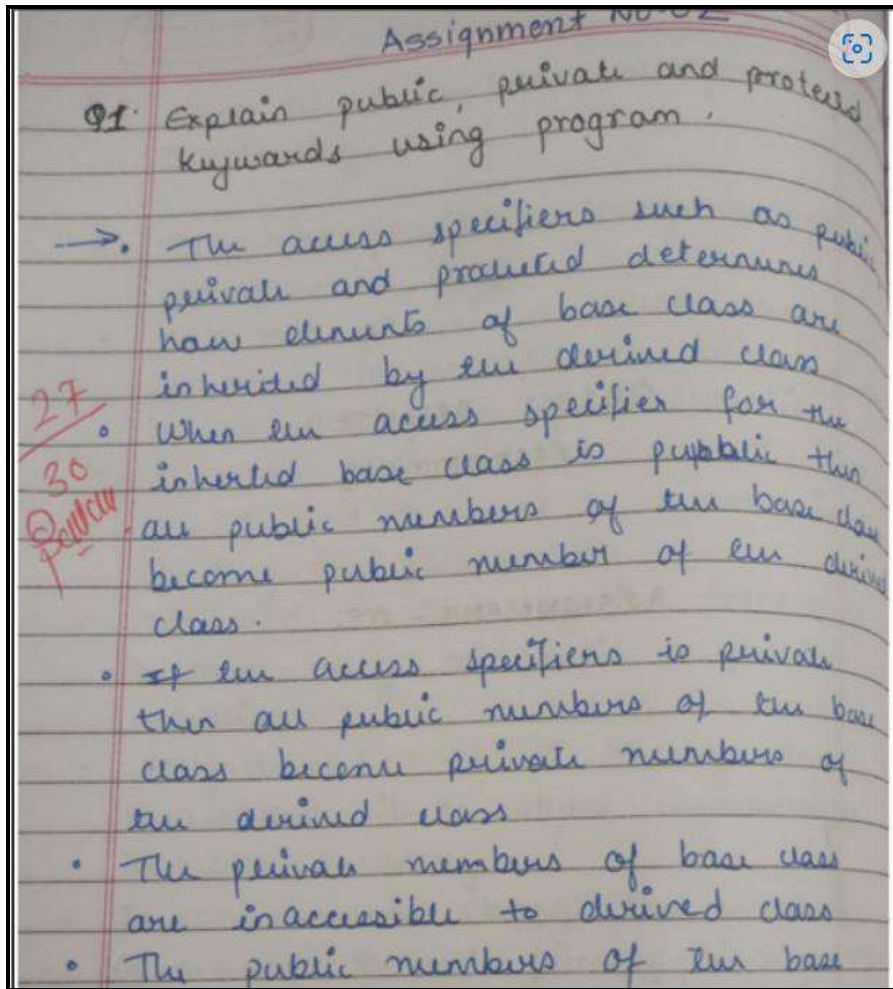 Assignment No. 02
Q1. Explain public, private and protected
keywards using program.
→. The access specifiers such as public
private and protected determines
how elements of base class are
inherited by the derived class
27
• When the access specifier for the
30
inherted base class is public then
all public members of the base class
become public member of the derived
class.
• If the access specifiers is private
then all public members of the base
class become private members of
the derived class
• The private members of base class
are inaccessible to derived class
• The public members of the base